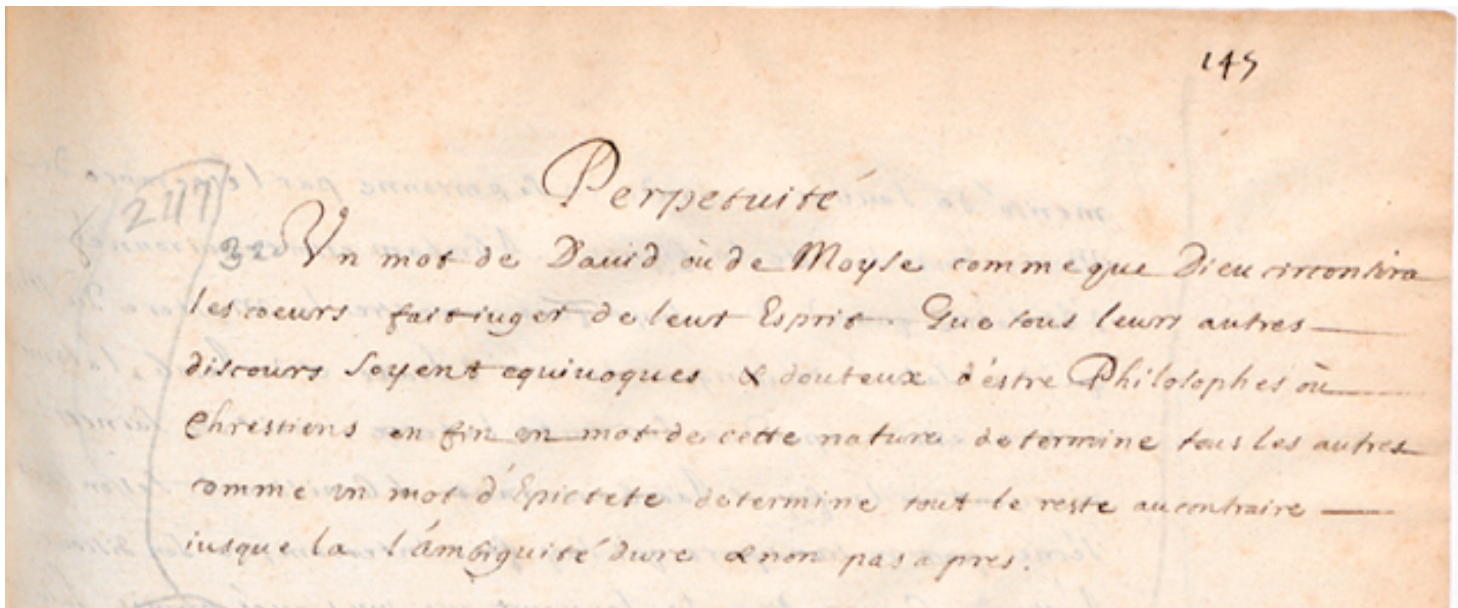 145
Perpetuité
Vn mot de Dauid où de Moyse comme que Dieu circonsira
les coeurs fait iuger de leur Esprit. Que tous leurs autres
discours soyent equiuoques & douteux d'éstre Philosophes où
Chrestiens en fin vn mot de cette nature determine tous les autres
comme vn mot d'Épictete determine tout le reste au contraire
iusque la l'ámbiguité dure & non pas apres.